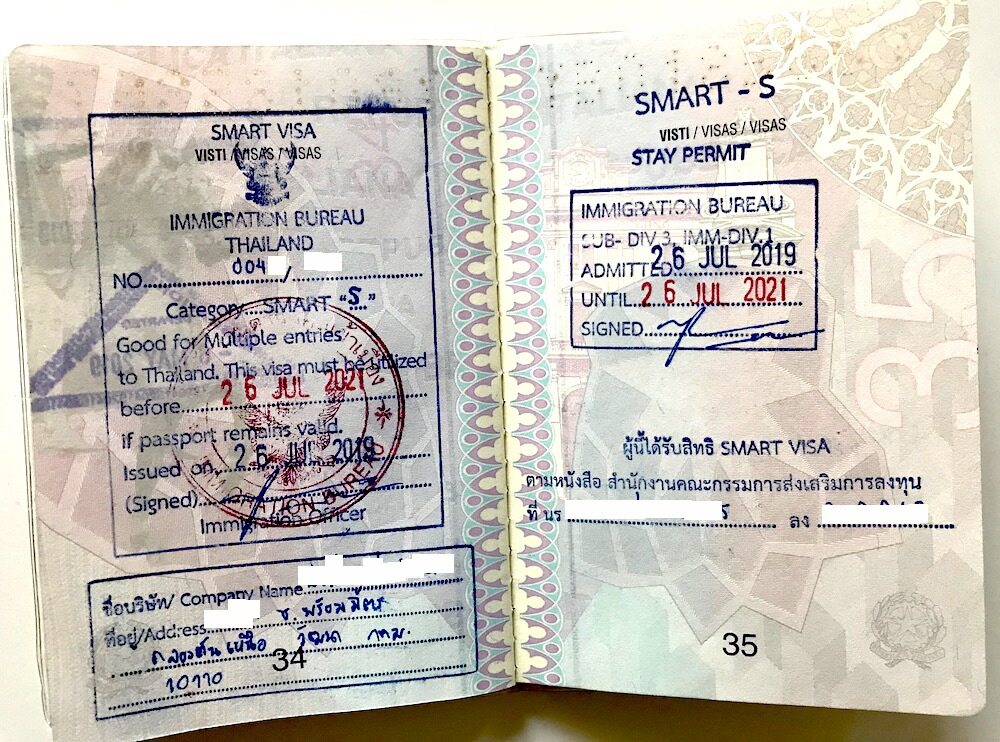 SMART VISA
VISTI / VISAS / VISAS
IMMIGRATION BUREAU
THAILAND
NO. 004 /
Category....SMART "S"
Good for Multiple entries
to Thailand. This visa must be utilized
before 26 JUL 2021
if passport remains valid.
Issued on 26 JUL 2019
(Signed)
Immigration Officer
IMMIGRATION BUREAU
ชื่อบริษัท/ Company Name
ที่อยู่/Address ซ.พร้อมมิตร
คลองตันเหนือ วัฒนา กทม.
10110
34
SMART - S
VISTI / VISAS / VISAS
STAY PERMIT
IMMIGRATION BUREAU
SUB- DIV.3, IMM-DIV.1
ADMITTED 26 JUL 2019
UNTIL 26 JUL 2021
SIGNED
ผู้นี้ได้รับสิทธิ SMART VISA
ตามหนังสือ สำนักงานคณะกรรมการส่งเสริมการลงทุน
ที่ นร ลง
35